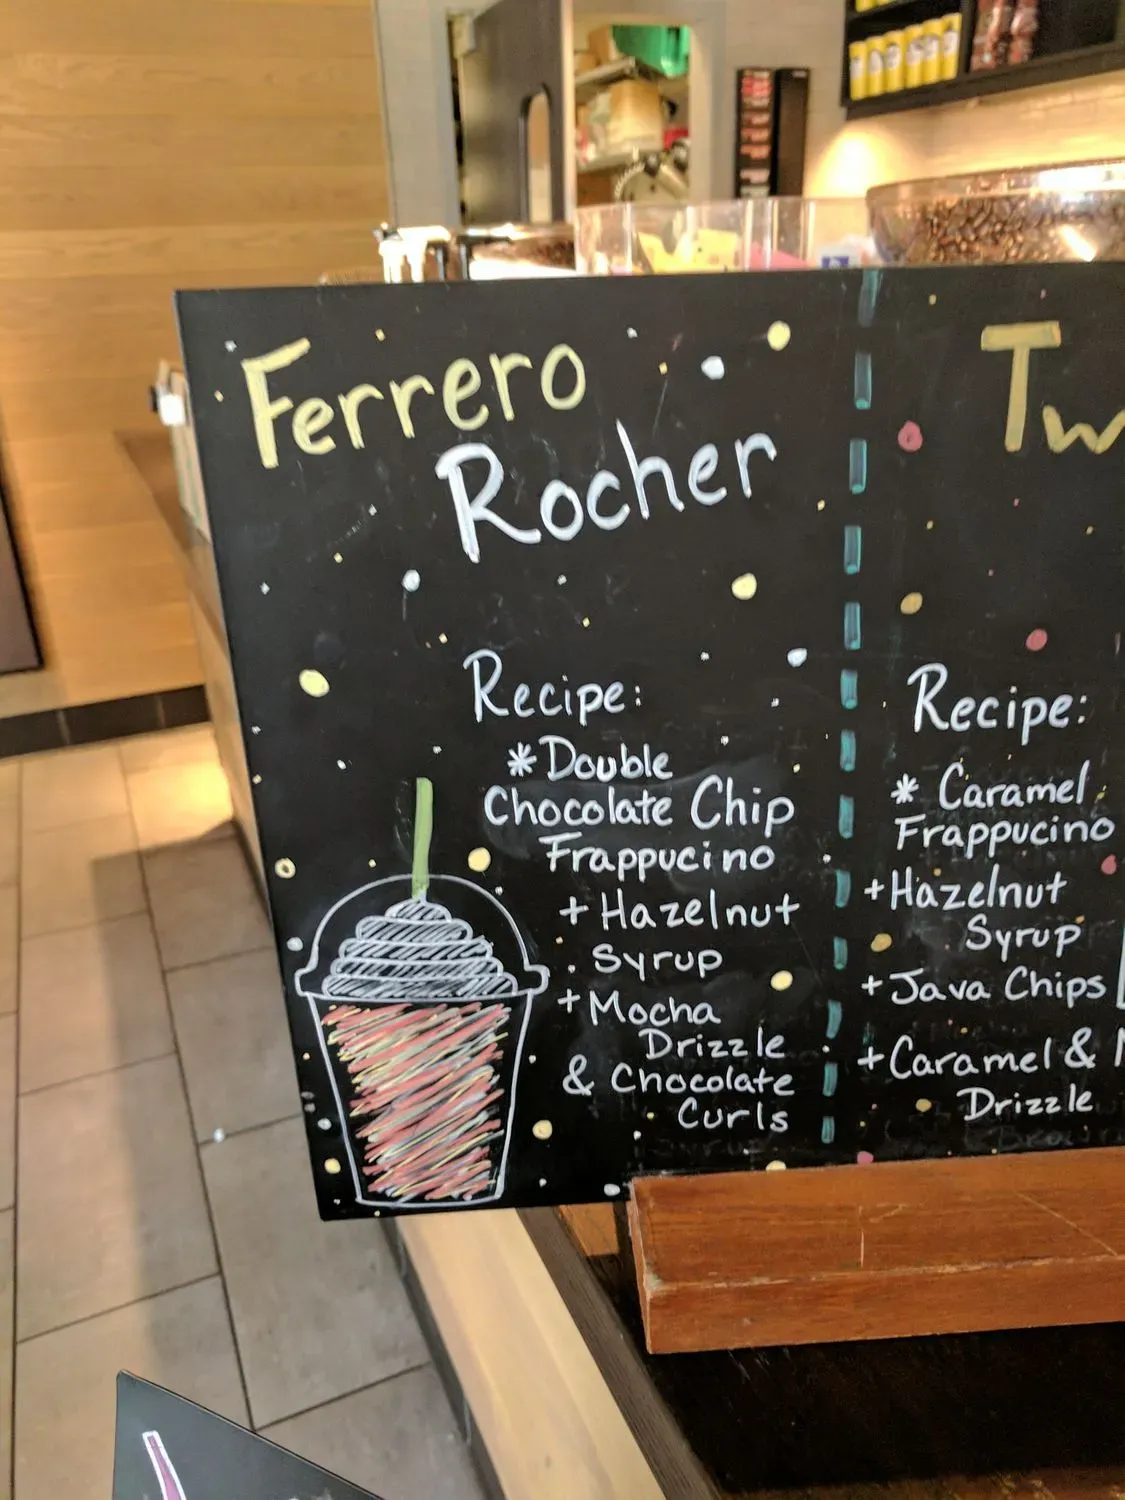 Ferrero
Rocher
Recipe:
* Double
Chocolate Chip
Frappucino
+ Hazelnut
Syrup
+ Mocha
Drizzle
& Chocolate
Curls
Recipe:
* Caramel
Frappucino
+ Hazelnut
Syrup
+ Java Chips
+ Caramel &
Drizzle